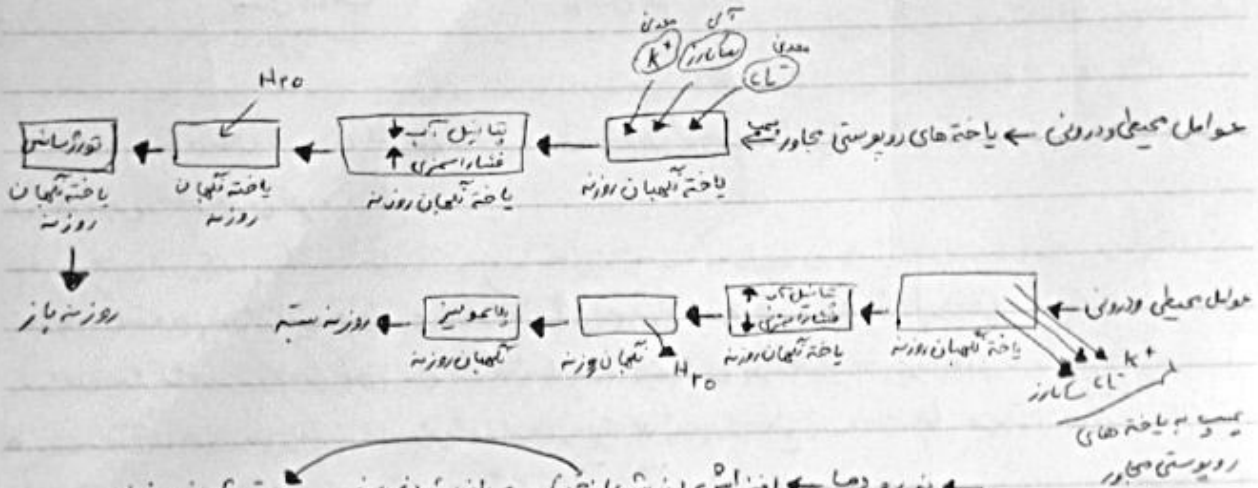 معدنی آلی معدنی
K⁺ ساکارز CL⁻
عوامل محیطی و درونی ← یاخته های روپوستی مجاور پمپ ←
یاخته نگهبان روزنه
پتانسیل آب ↓
فشار اسمزی ↑
یاخته نگهبان روزنه
H۲O
یاخته نگهبان
روزنه
تورژسانس
یاخته نگهبان
روزنه
روزنه باز
عوامل محیطی و درونی ←
یاخته نگهبان روزنه
K⁺ CL⁻ ساکارز
پمپ به یاخته های
روپوستی مجاور
پتانسیل آب ↑
فشار اسمزی ↓
یاخته نگهبان روزنه
H۲O
نگهبان روزنه
پلاسمولیز
نگهبان روزنه
روزنه بسته